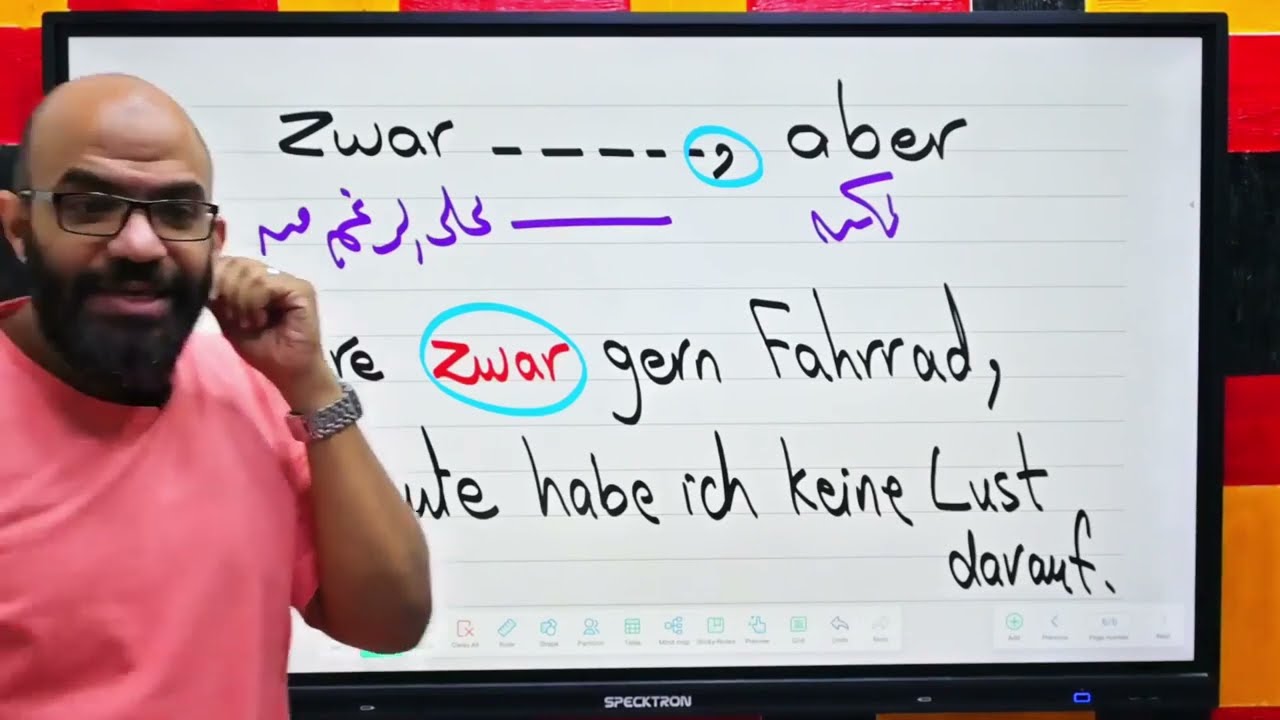 zwar -----, aber
على الرغم من ــــــ لكن
re zwar gern Fahrrad,
ute habe ich keine Lust
darauf.
Clear All Ruler Shape Partition Table Mind map Sticky Notes Preview Grid Undo Redo Add Previous 6/6 Page number Next
SPECKTRON